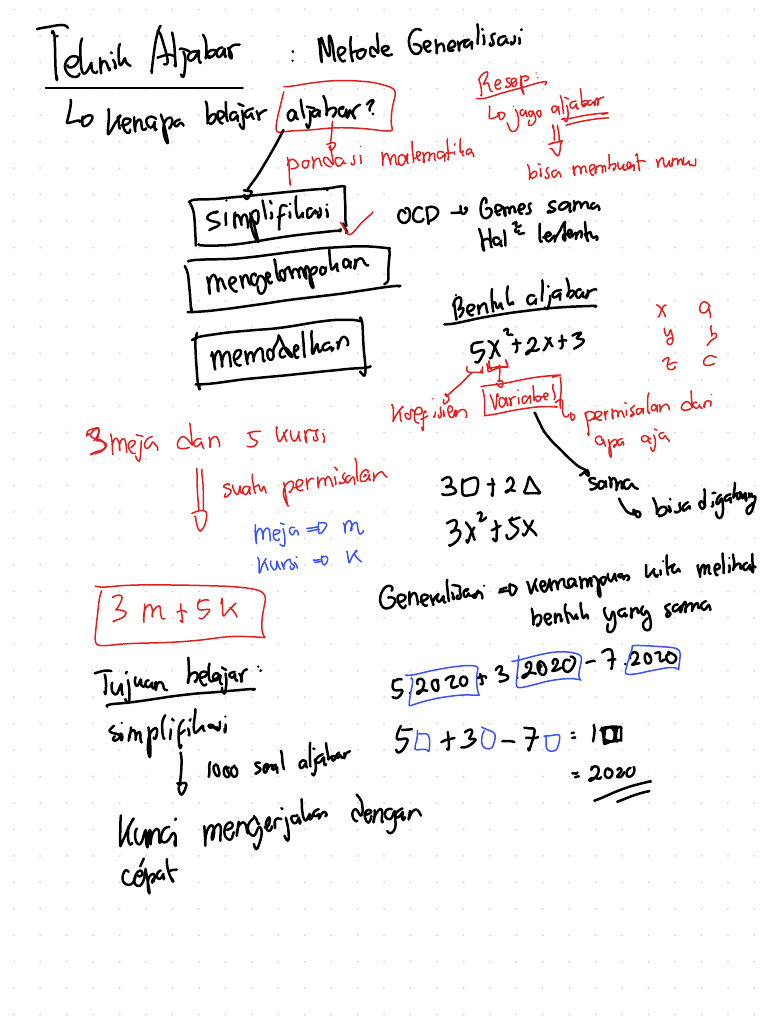 Teknik Aljabar : Metode Generalisasi
↳ kenapa belajar aljabar?
pondasi matematika
Resep:
↳ jago aljabar
⇓
bisa membuat rumus
simplifikasi ✓
OCD → Gemes sama
Hal² tertentu
mengelompokan
memodelkan
Bentuk aljabar
5x²+2x+3
koefisien
Variabel
↳ permisalan dari
apa aja
x a
y b
z c
sama
↳ bisa digabung
3□+2△
3x²+5x
3 meja dan 5 kursi
⇓ suatu permisalan
meja ⇒ m
kursi ⇒ k
3 m + 5 k
Generalisasi ⇒ kemampuan kita melihat
bentuk yang sama
5.2020 + 3 2020 - 7.2020
5□ + 3□ - 7□ = 1□
= 2020
Tujuan belajar:
simplifikasi
↓ 1000 soal aljabar
Kunci mengerjakan dengan
cepat